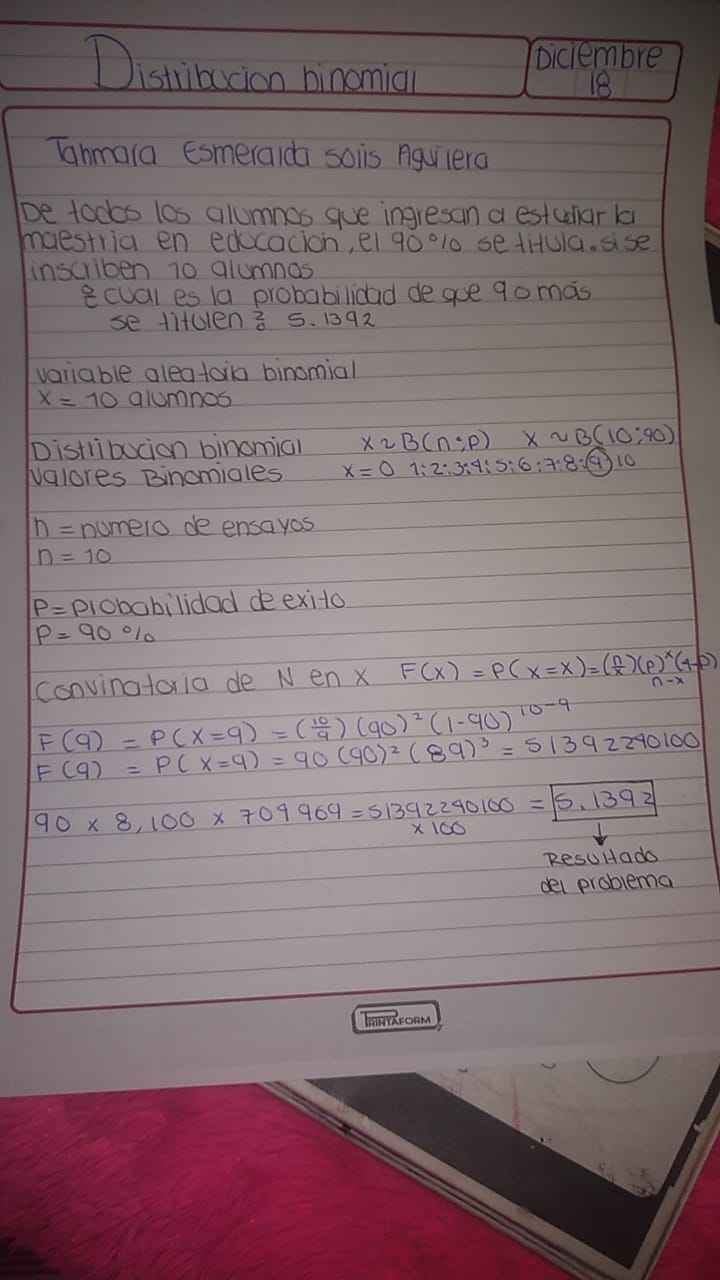 Distribucion binomial
Diciembre
18
Tahmara Esmeralda solis Aguilera
De todos los alumnos que ingresan a estudiar la
maestria en educacion, el 90% se titula. si se
inscriben 10 alumnos
¿cual es la probabilidad de que 9 o más
se titulen? 5.1392
variable aleatoria binomial
x = 10 alumnos
Distribucion binomial x~B(n;p) x~B(10;90)
valores Binomiales x=0 1;2;3;4;5;6;7;8;9;10
n = numero de ensayos
n = 10
P= probabilidad de exito
P= 90%
Convinatoria de N en x F(x) = P(x=x)=(n/x)(p)^x(1-p)
n-x
F(9) = P(x=9) = (10/9)(90)²(1-90)^10-9
F(9) = P(x=9) = 90(90)²(89)³ = 51392290100
90 x 8,100 x 704969 = 51392290100 = 5.1392
x 100
Resultado
del problema
PRINTAFORM